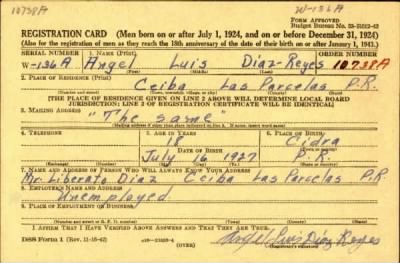 10738A
W-136A
FORM APPROVED
Budget Bureau No. 33-R012-42
REGISTRATION CARD (Men born on or after July 1, 1924, and on or before December 31, 1924)
(Also for the registration of men as they reach the 18th anniversary of the date of their birth on or after January 1, 1943.)
SERIAL NUMBER 1. NAME (Print) ORDER NUMBER
W-136A Angel Luis Diaz-Reyes 10738A
(First) (Middle) (Last)
2. PLACE OF RESIDENCE (Print)
Ceiba Las Parcelas P.R.
(Number and street) (Town, township, village or city) (County) (State)
[THE PLACE OF RESIDENCE GIVEN ON LINE 2 ABOVE WILL DETERMINE LOCAL BOARD
JURISDICTION; LINE 2 OF REGISTRATION CERTIFICATE WILL BE IDENTICAL]
3. MAILING ADDRESS
"The same"
[Mailing address if other than place indicated on line 2. If same, insert word same]
4. TELEPHONE 5. AGE IN YEARS 6. PLACE OF BIRTH
18 Cidra
DATE OF BIRTH
July 16 1927 P.R.
(Exchange) (Number) (Mo.) (Day) (Yr.) (State or country)
7. NAME AND ADDRESS OF PERSON WHO WILL ALWAYS KNOW YOUR ADDRESS
Mr. Liberato Diaz Ceiba Las Parcelas P.R.
8. EMPLOYER'S NAME AND ADDRESS
Unemployed
9. PLACE OF EMPLOYMENT OR BUSINESS
(Number and street or R. F. D. number) (Town) (County) (State)
I AFFIRM THAT I HAVE VERIFIED ABOVE ANSWERS AND THAT THEY ARE TRUE.
DSS Form 1 (Rev. 11-16-42) (OVER) Angel Luis Diaz Reyes